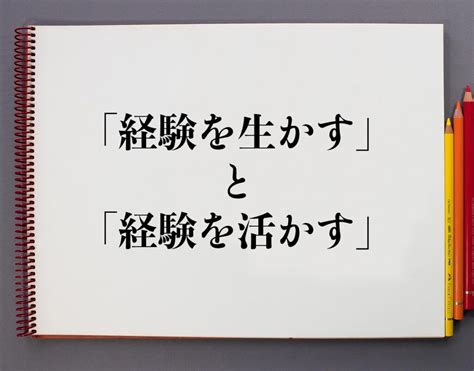 「経験を生かす」
と
「経験を活かす」